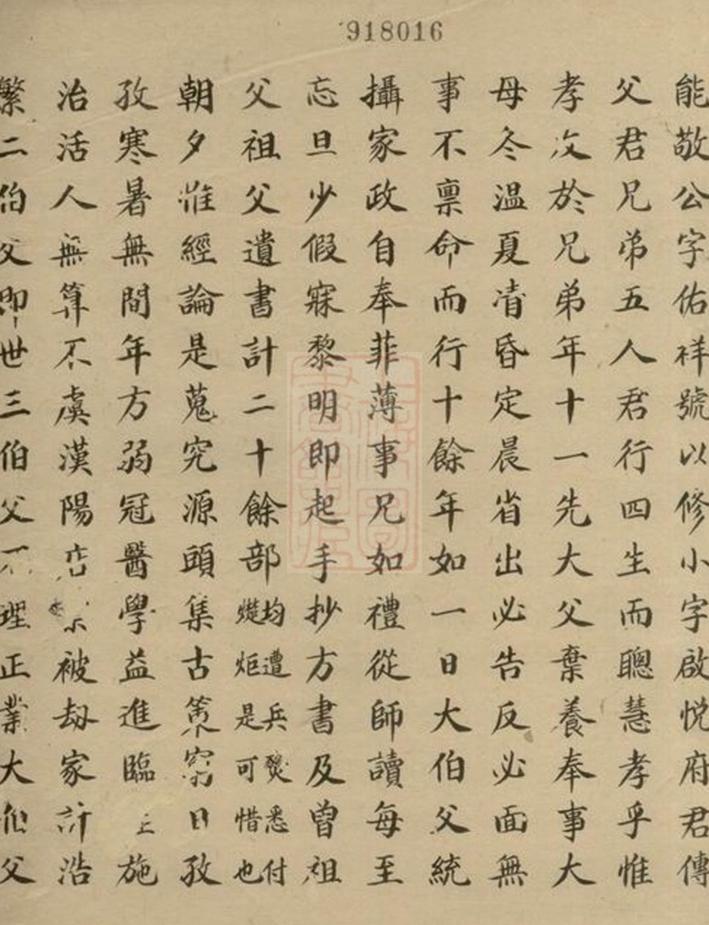 918016
能敬公字佑祥號以修小字啟悅府君傳
父君兄弟五人君行四生而聰慧孝乎惟
孝友於兄弟年十一先大父棄養奉事大
母冬溫夏凊昏定晨省出必告反必面無
事不稟命而行十餘年如一日大伯父統
攝家政自奉菲薄事兄如禮從師讀每至
忘旦少假寐黎明即起手抄方書及曾祖
父祖父遺書計二十餘部均遭兵燹悉付炬是可惜也
朝夕惟經論是蒐究源頭集古策窮日孜
孜寒暑無間年方弱冠醫學益進臨施
治活人無算不虞漢陽店被劫家計浩
繁二伯父即世三伯父不理正業大伯父